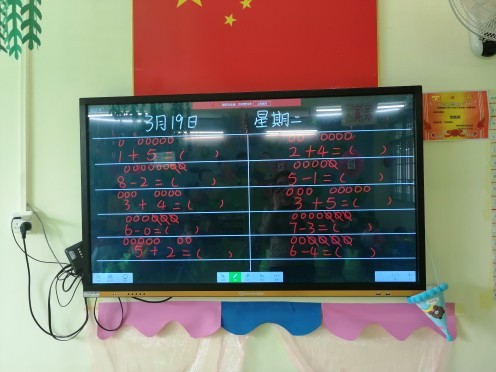 3月19日 星期二
1+5=( ) 2+4=( )
8-2=( ) 5-1=( )
3+4=( ) 3+5=( )
6-0=( ) 7-3=( )
5+2=( ) 6-4=( )